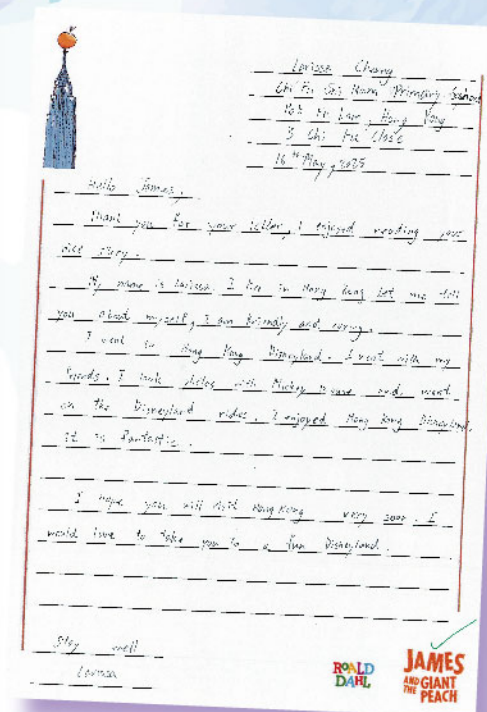 Larissa Chang
Chi Fu Sai Kwun Primary School
Pok Fu Lam, Hong Kong
3 Chi Fu Close
16th May, 2025
Hello James,
Thank you for your letter, I enjoyed reading your
nice story.
My name is Larissa. I live in Hong Kong Let me tell
you about myself, I am friendly and caring.
I went to Hong Kong Disneyland. I went with my
friends. I took photos with Mickey Mouse and went
on the Disneyland rides. I enjoyed Hong Kong Disneyland,
it is fantastic.
I hope you will visit Hong Kong very soon. I
would love to take you to a fun Disneyland.
Stay well
Larissa
ROALD
DAHL
JAMES
AND THE GIANT
PEACH